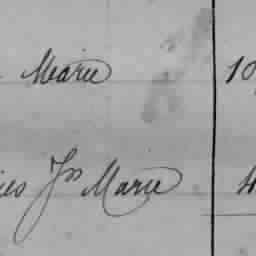 Marie 10
Jn Marie 4